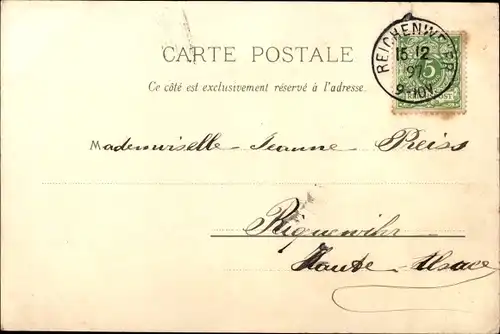 CARTE POSTALE
Ce côté est exclusivement réservé à l'adresse.
REICHENWEIER
16 12
97
9-10V
5
Mademoiselle Jeanne Preiss
Riquewihr
Haute-Alsace